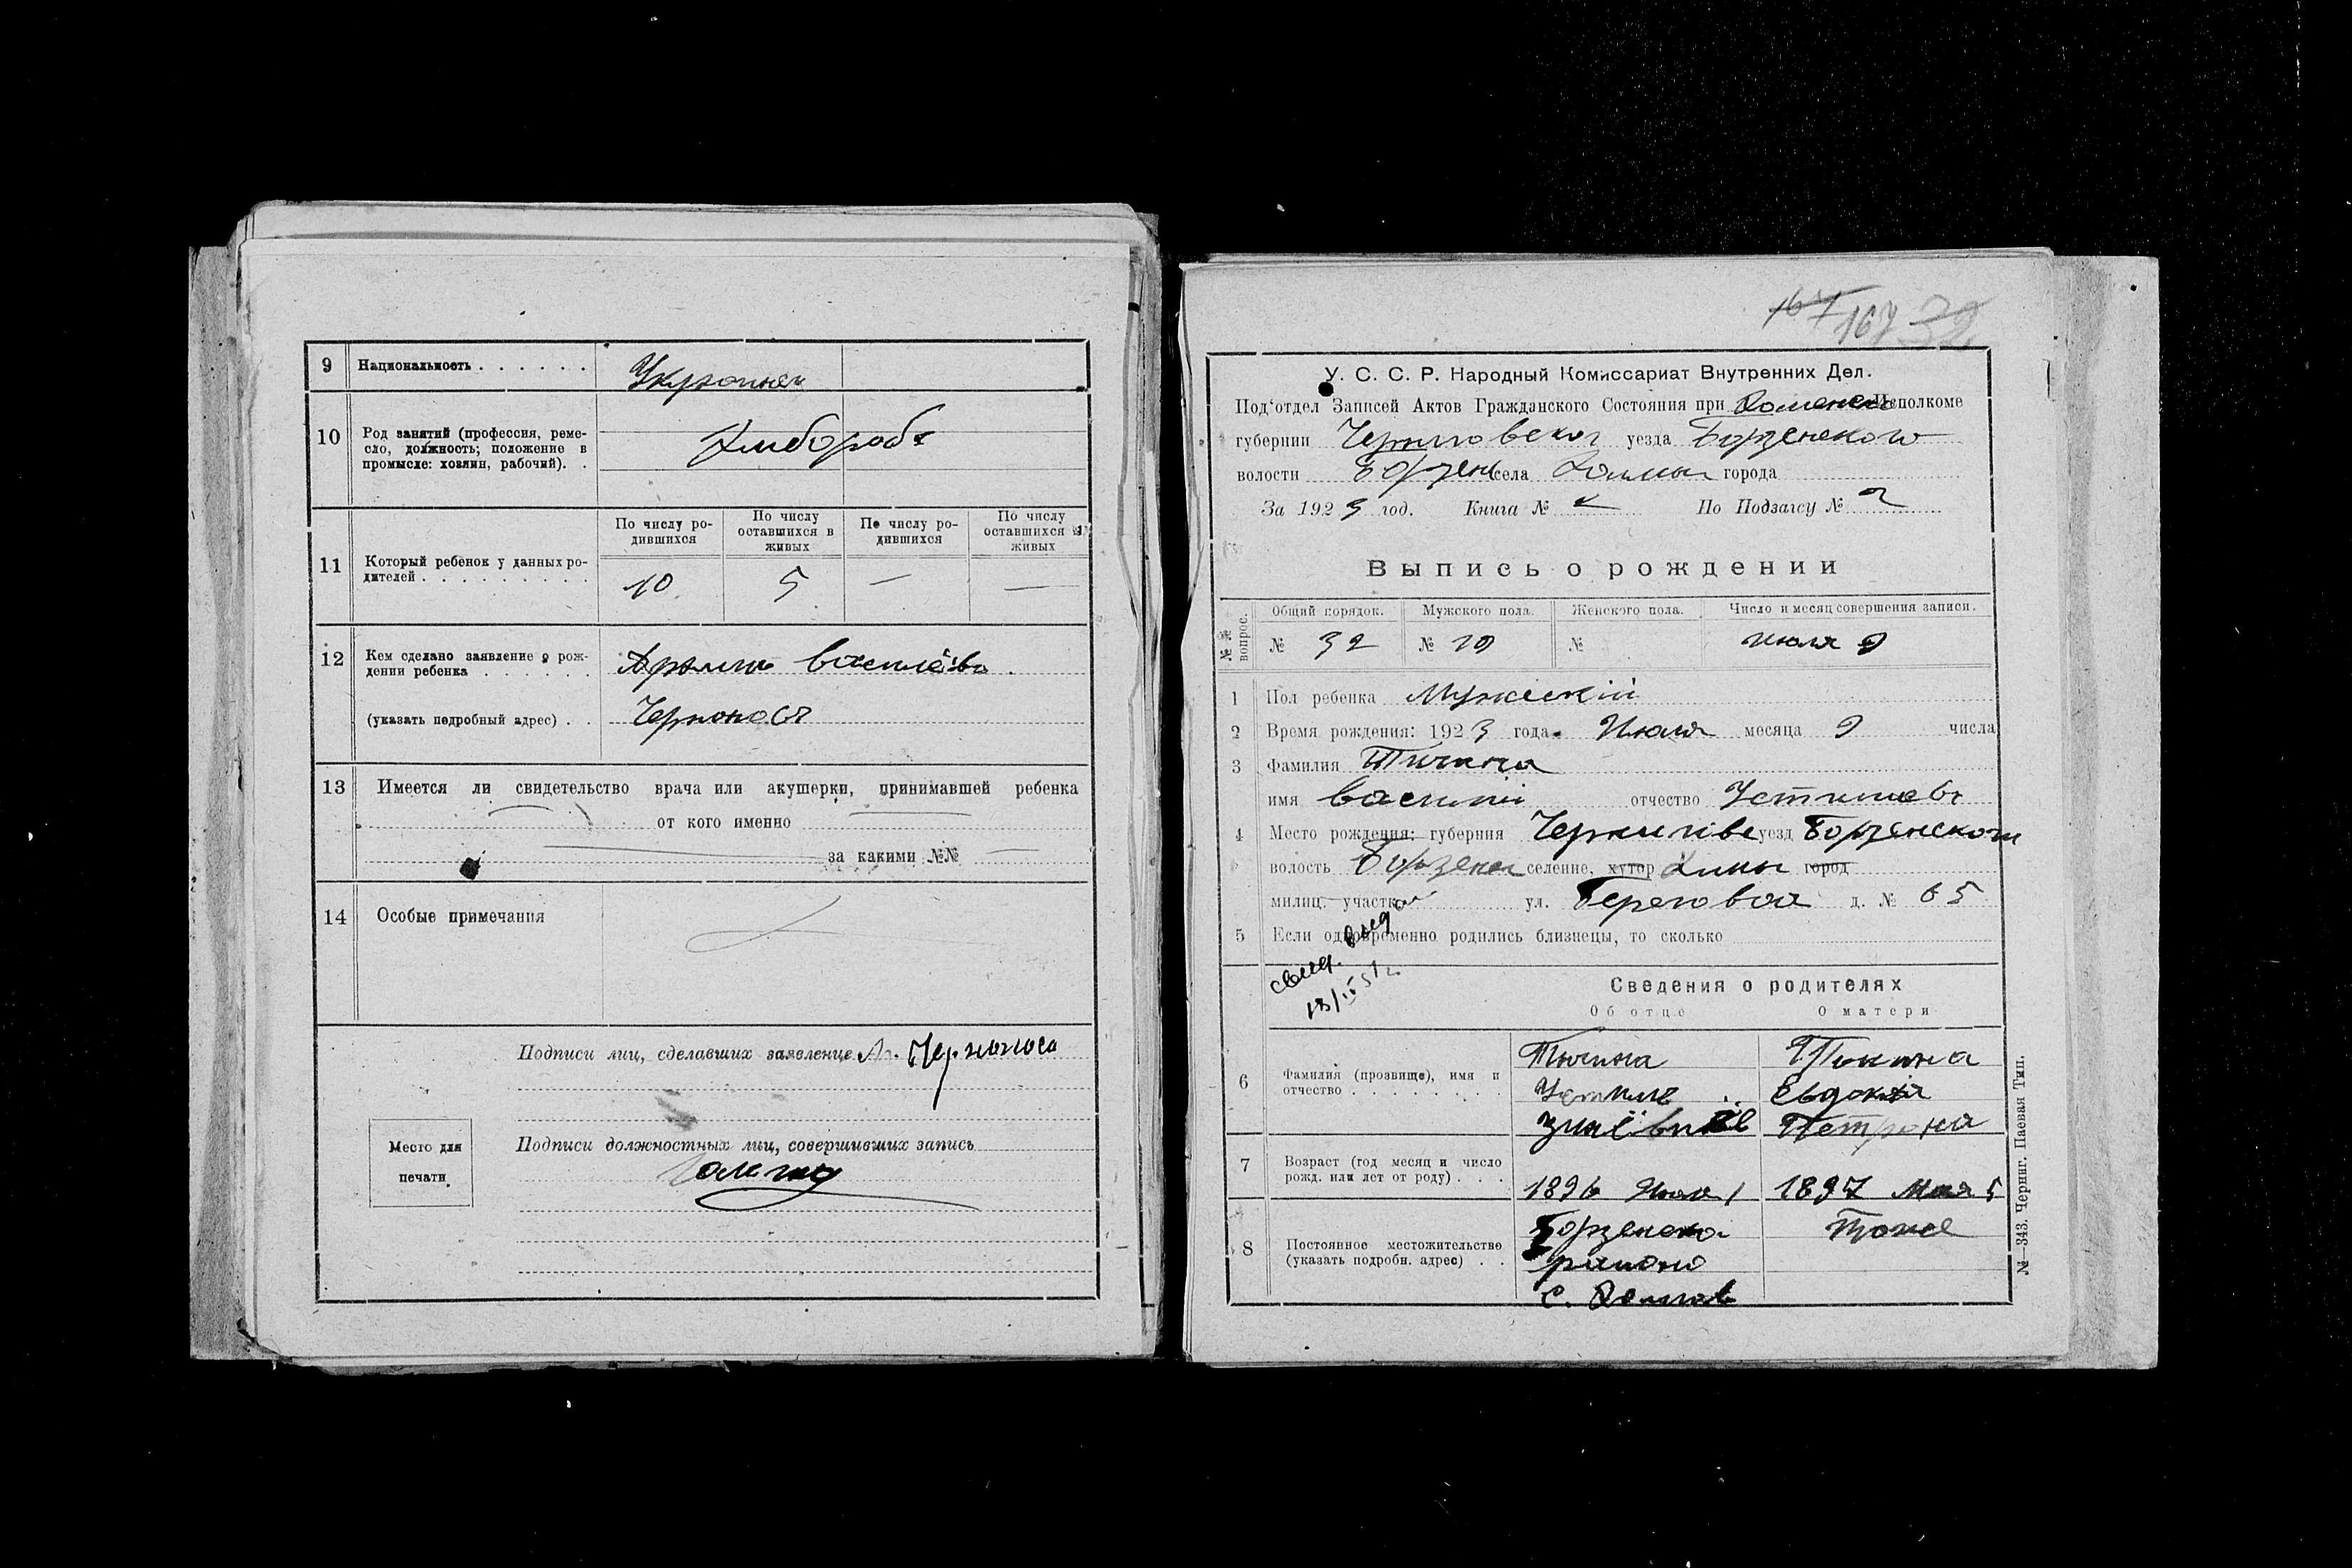 9 Национальность . . . . . .
Украинец
10 Род занятий (профессия, реме-
сло, должность; положение в
промысле: хозяин, рабочий). .
Хлебороб
11 Который ребенок у данных ро-
дителей . . . . . . . . .
По числу ро-
дившихся
По числу
оставшихся в
живых
По числу ро-
дившихся
По числу
оставшихся в
живых
10 5 — —
12 Кем сделано заявление о рож-
дении ребенка . . . . . .
(указать подробный адрес) . .
Чернонос
13 Имеется ли свидетельство врача или акушерки, принимавшей ребенка
от кого именно
за какими №№ —
14 Особые примечания
Подписи лиц, сделавших заявление
Место для
печати
Подписи должностных лиц, совершивших запись
167 167 32
У. С. С. Р. Народный Комиссариат Внутренних Дел.
Под‘отдел Записей Актов Гражданского Состояния при Исполкоме
губернии уезда Борзенского
волости Борзен села города
За 1923 год. Книга № По Подзагсу № 2
Выпись о рождении
№ № вопрос.
Общий порядок. Мужского пола. Женского пола. Число и месяц совершения записи.
№ 32 № 19 № июля 9
1 Пол ребенка Мужеский
2 Время рождения: 1923 года Июля месяца 9 числа
3 Фамилия Тичина
имя Василий отчество Устинов
4 Место рождения: губерния уезд Борзенского
волость Борзенс селение, хутор город
милиц. участк ул. Береговая д. № 65
5 Если одновременно родились близнецы, то сколько
свид. выд
18/IV 51 г.
Сведения о родителях
Об отце О матери
6 Фамилия (прозвище), имя и
отчество . . . . . . . .
Тичина Тичина
Устин Евдокия
Петровна
7 Возраст (год месяц и число
рожд. или лет от роду) . . .
1896 1897 Мая 5
8 Постоянное местожительство
(указать подробн. адрес) . .
Борзенско Тоже
района
с.
№—343. Черниг. Паевая Тип.